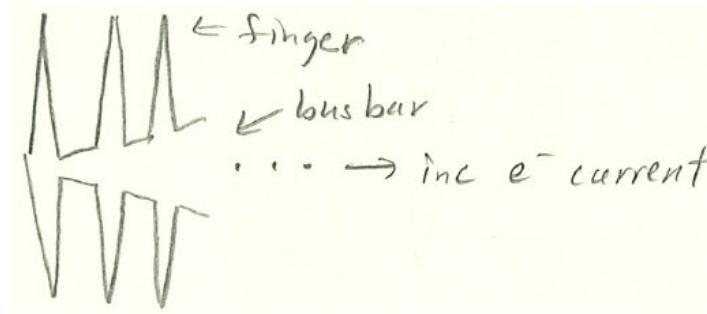 ← finger
↙ bus bar
... → inc e⁻ current